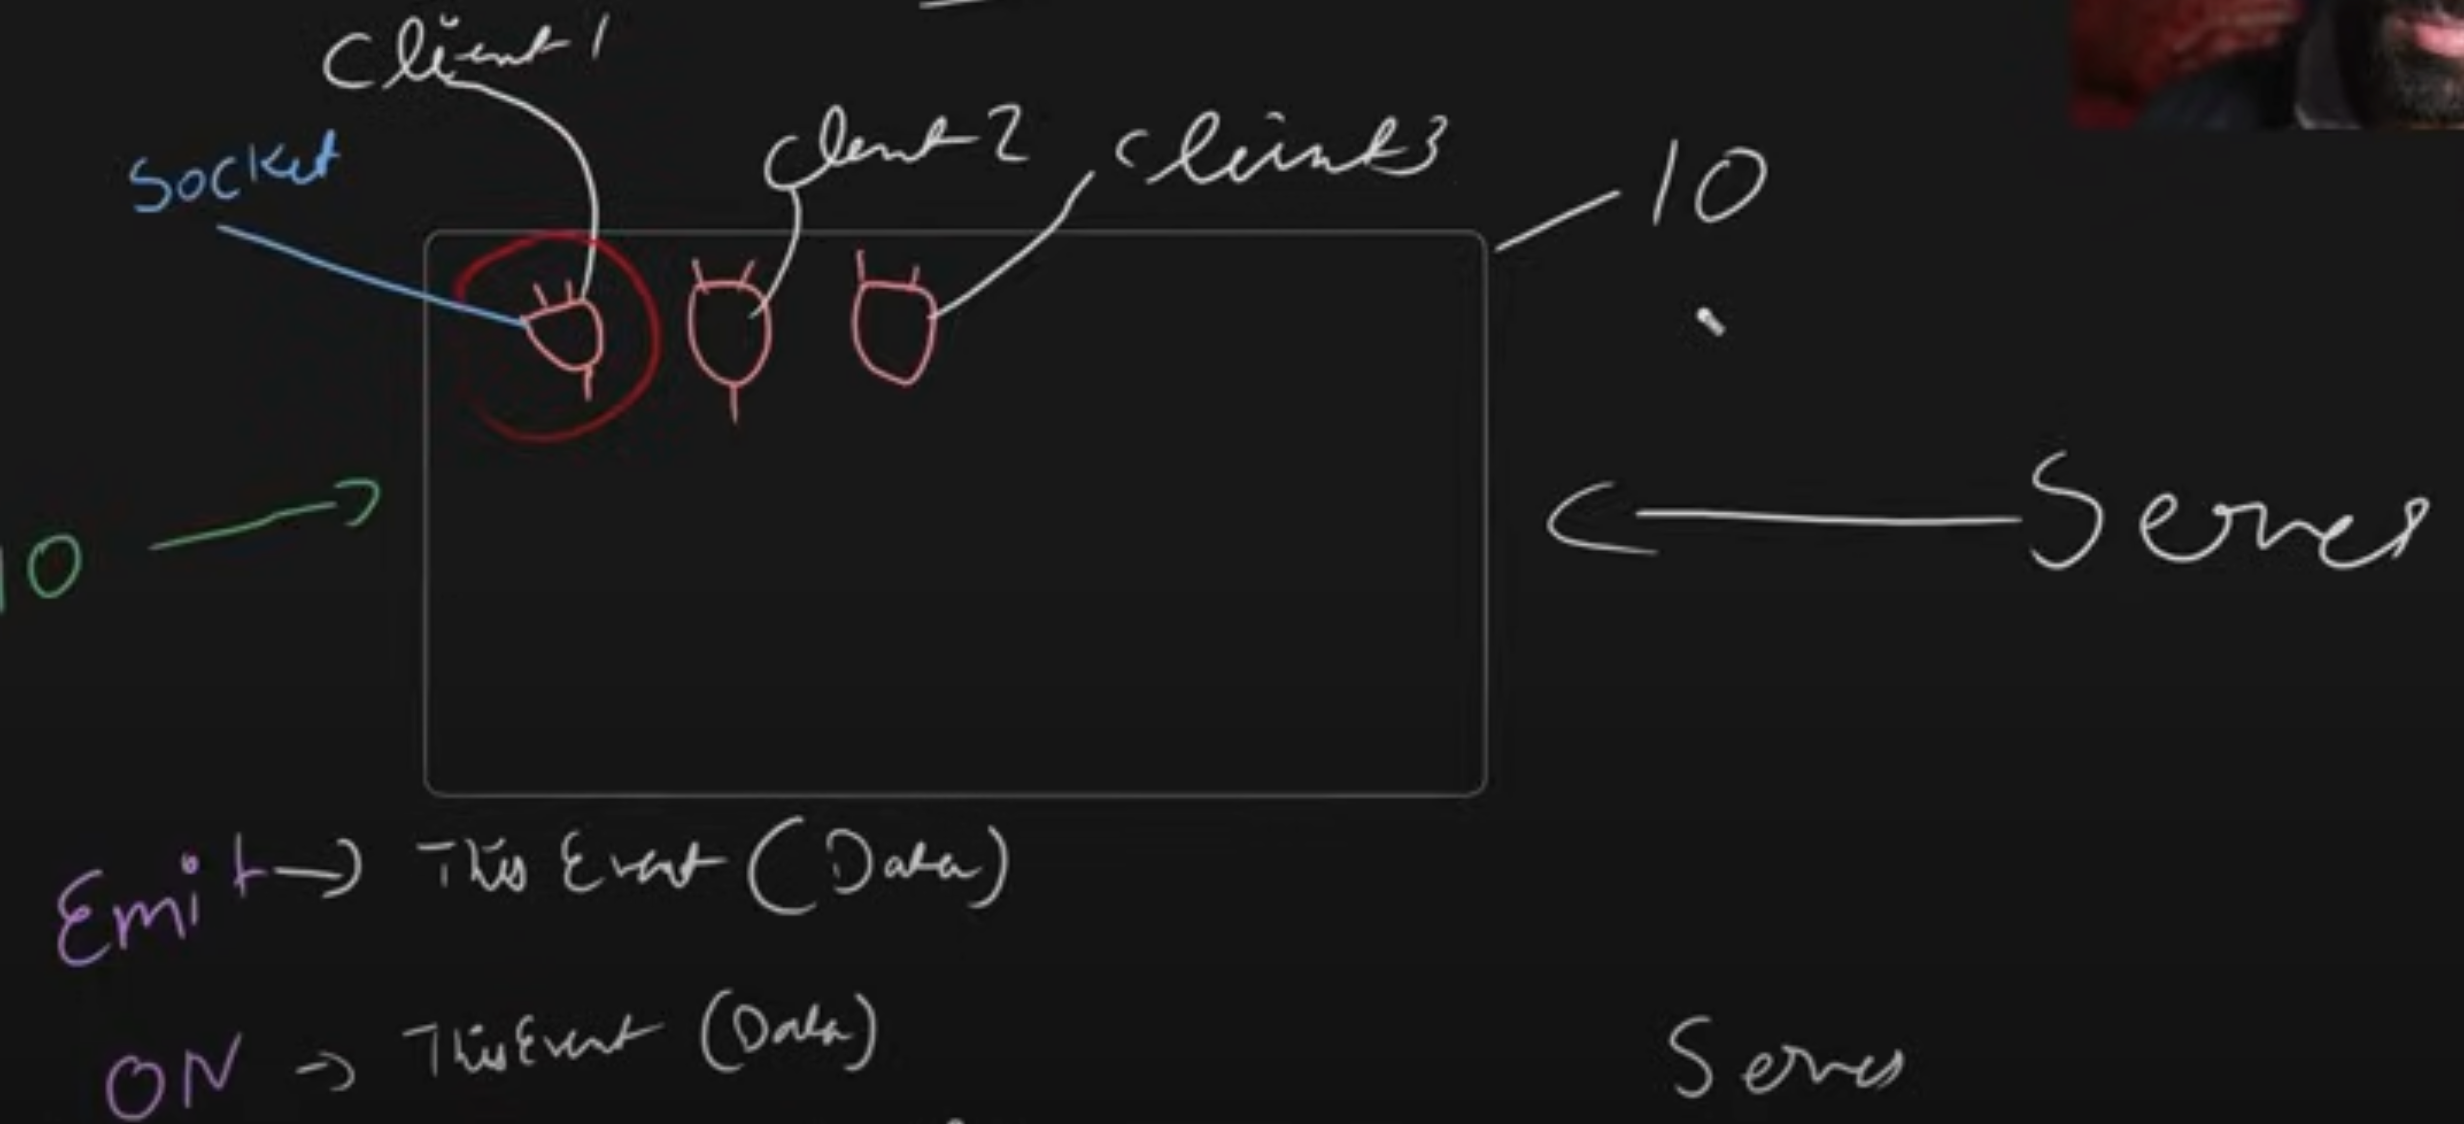 Client 1
Socket
Client 2
Client 3
10
10
Server
Emit → This Event (Data)
ON → This Event (Data)
Server